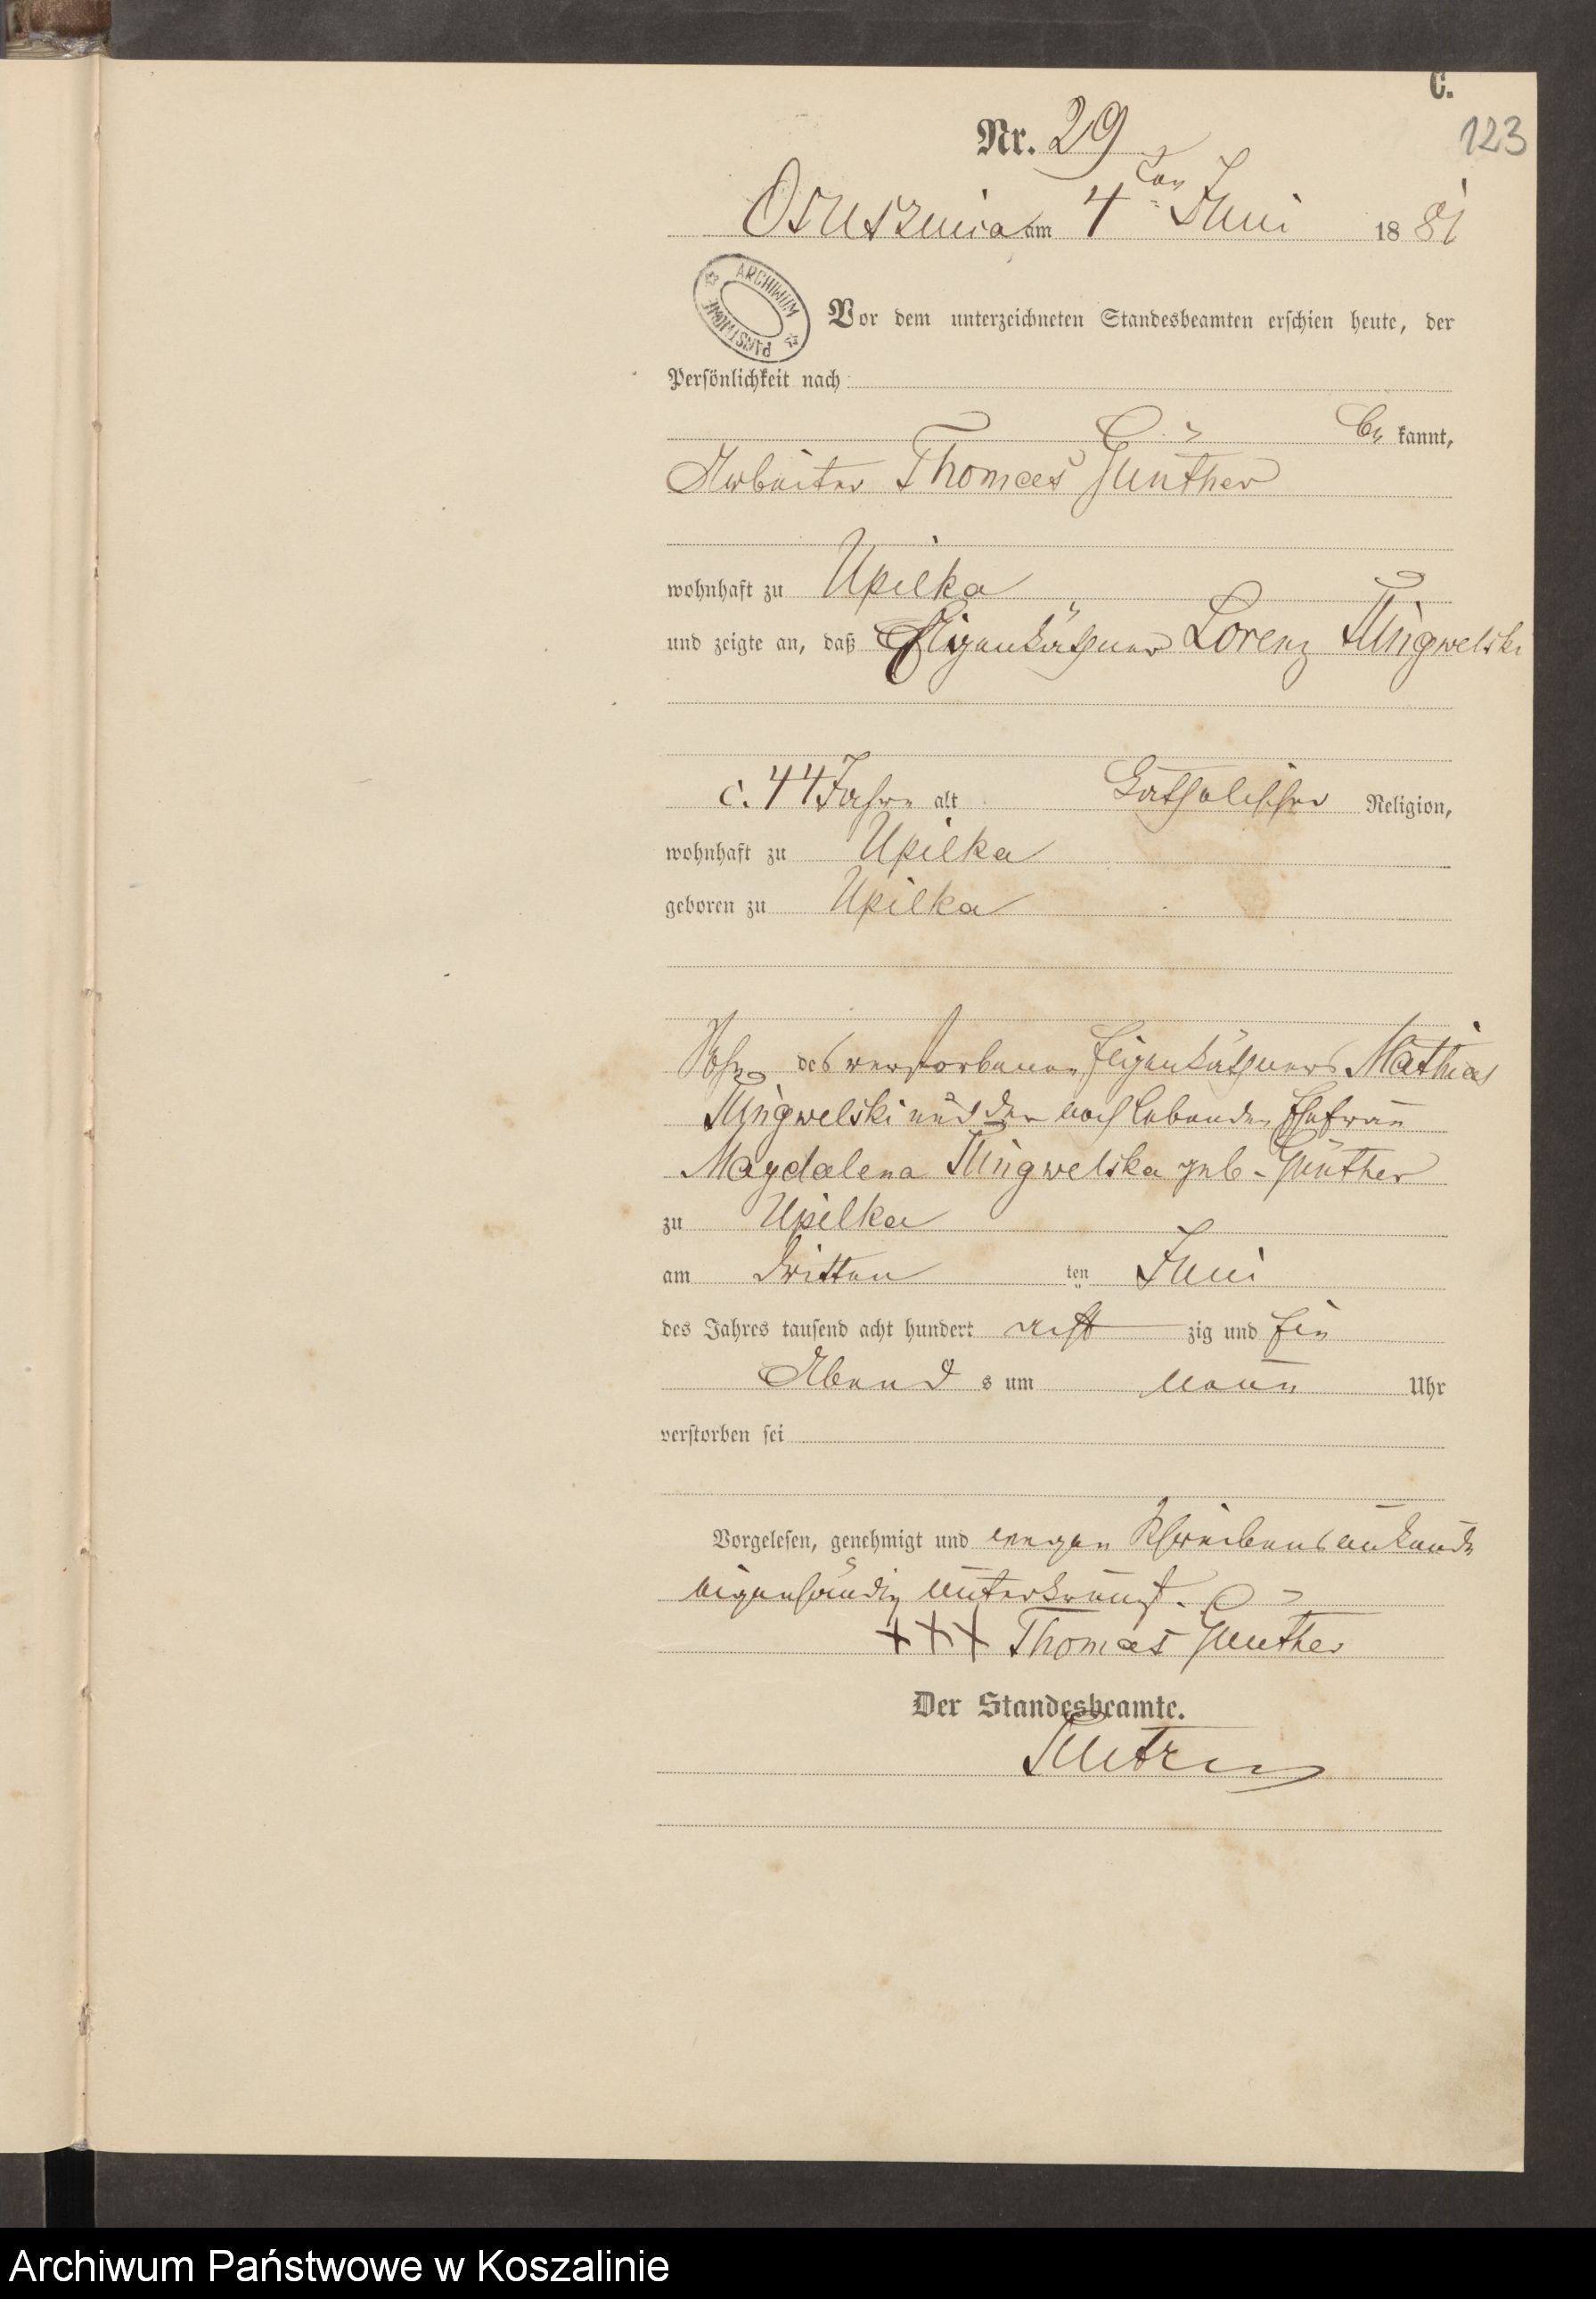 C.
123
Nr. 29
Ossusznica am 4ten Juni 1881
ARCHIWUM PAŃSTWOWE
Vor dem unterzeichneten Standesbeamten erschien heute, der
Persönlichkeit nach
be kannt,
Arbeiter Thomas Günther
wohnhaft zu Upilka
und zeigte an, daß Eigenkäthner Lorenz
c. 44 Jahre alt katholischer Religion,
wohnhaft zu Upilka
geboren zu Upilka
Sohn des verstorbenen Eigenkäthners Mathias
und der noch lebenden Ehefrau
Magdalena geb. Günther
zu Upilka
am dritten ten Juni
des Jahres tausend acht hundert acht zig und ein
Abend s um neun Uhr
verstorben sei
Vorgelesen, genehmigt und wegen Schreibensunkunde
eigenhändig unterkreuzt.
+++ Thomas Günther
Der Standesbeamte.
Archiwum Państwowe w Koszalinie